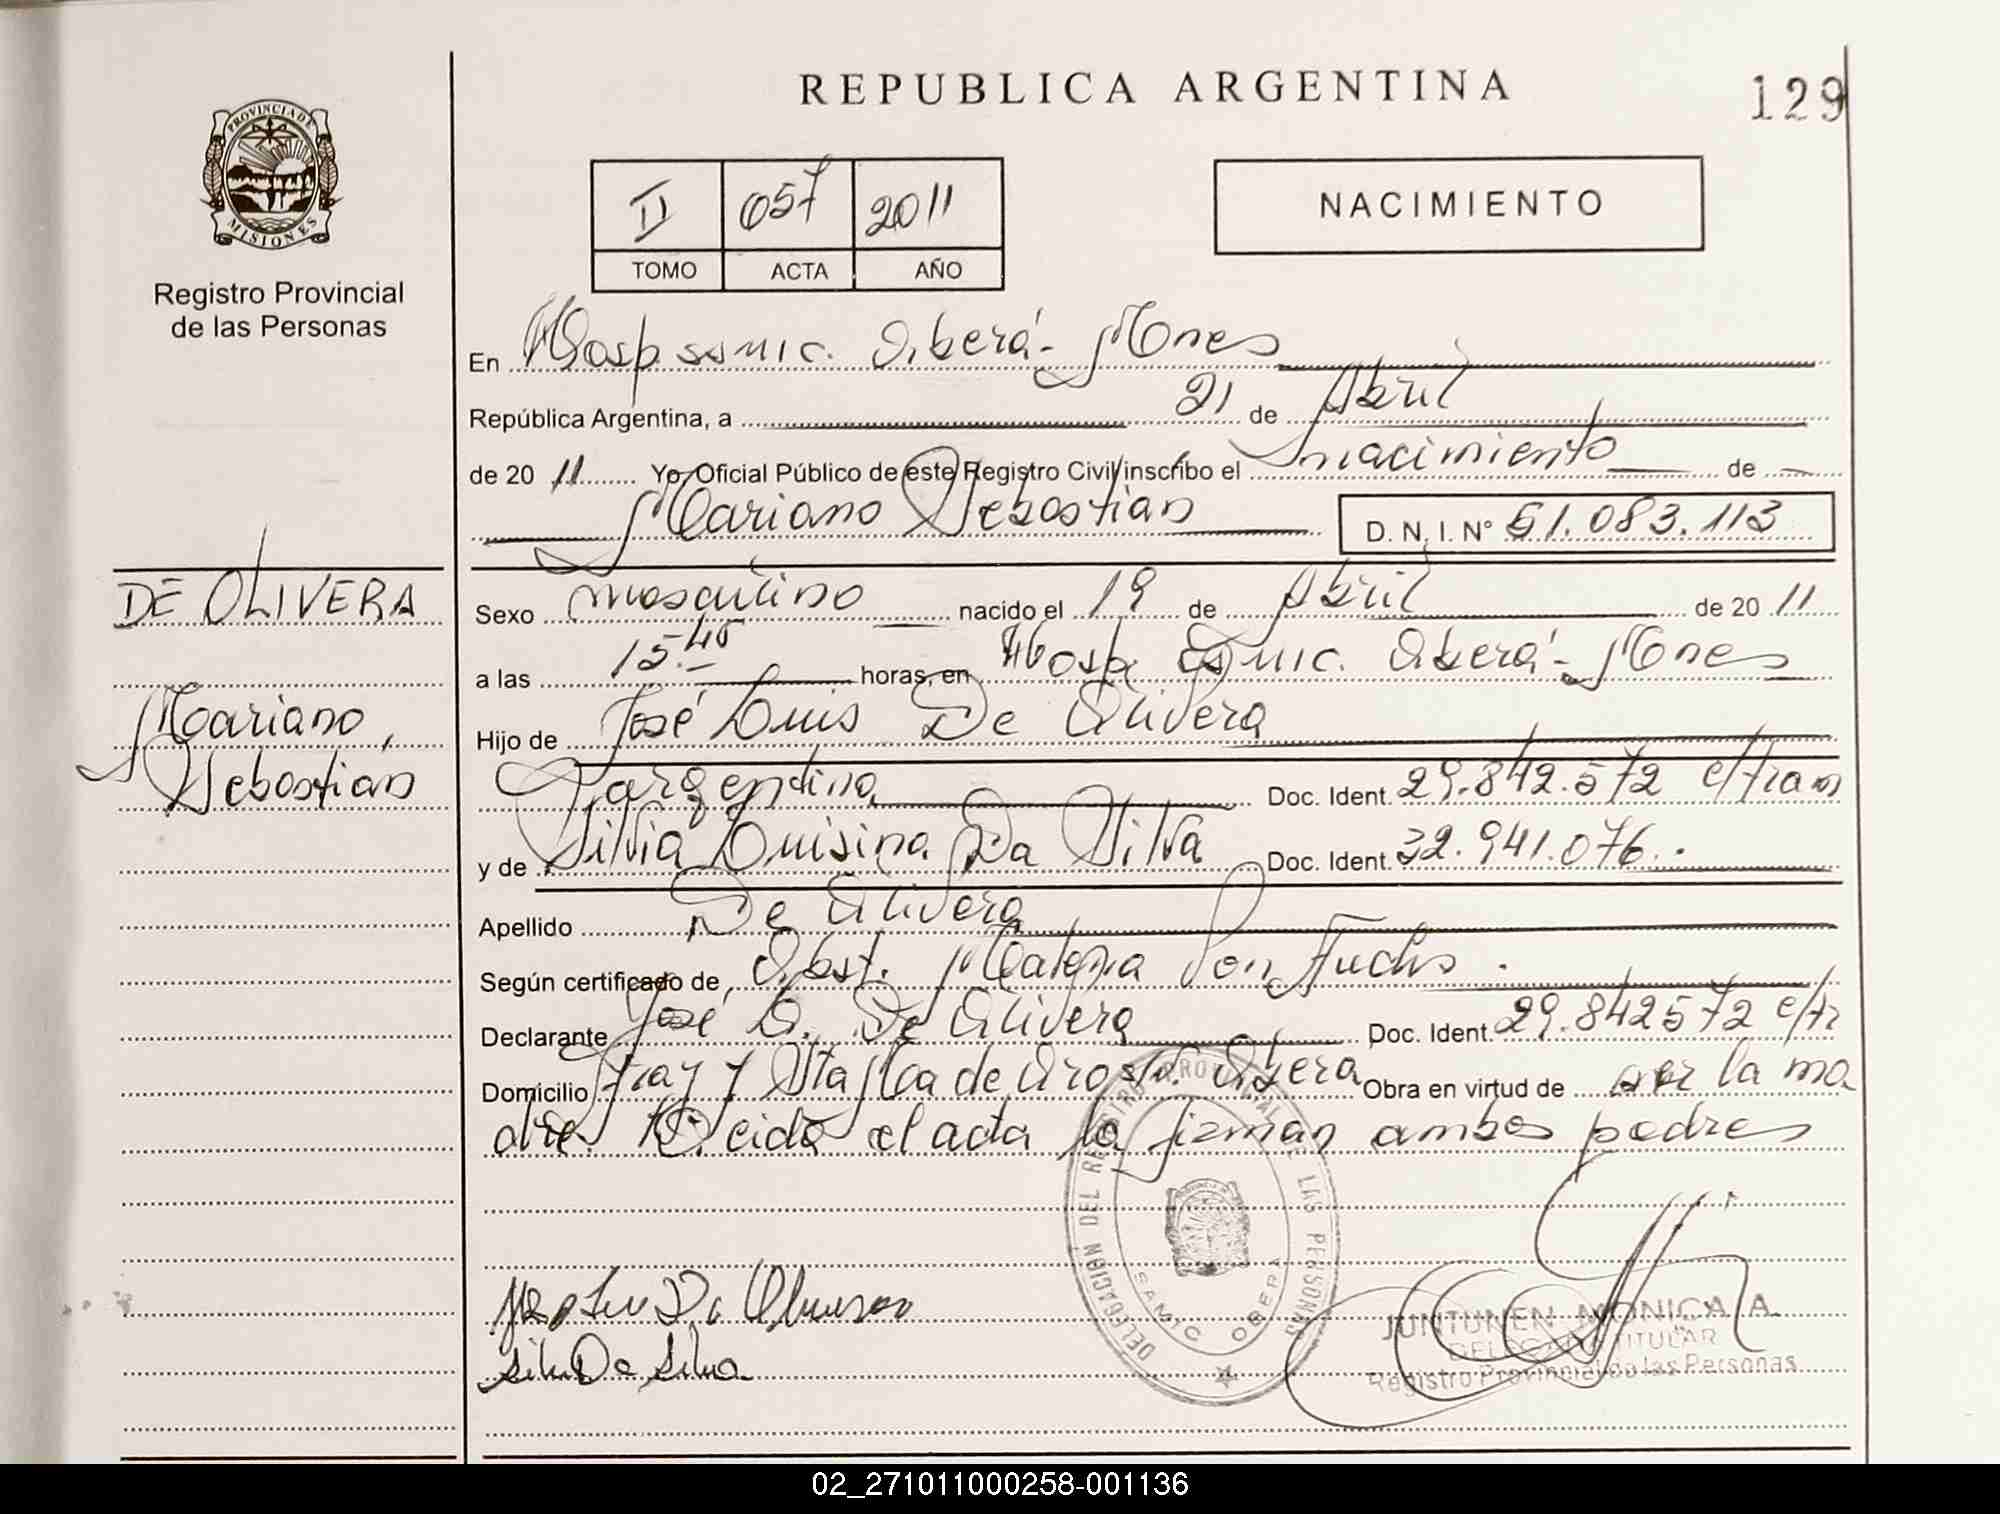 REPUBLICA ARGENTINA
129
PROVINCIA DE
MISIONES
Registro Provincial
de las Personas
II 057 2011
TOMO ACTA AÑO
NACIMIENTO
En Hosp. Oberá - Mnes
República Argentina, a 21 de Abril
de 20 11 Yo Oficial Público de este Registro Civil inscribo el nacimiento de
Mariano Sebastian D. N. I. N° 51.083.113
DE OLIVERA
Mariano,
Sebastian
Sexo masculino nacido el 19 de Abril de 20 11
a las 15.45 horas, en Hosp. Oberá - Mnes
Hijo de José Luis De Olivera
argentina Doc. Ident. 29.842.572
y de Silvia Luisina Da Silva Doc. Ident. 32.941.076.
Apellido De Olivera
Según certificado de Obst.
Declarante José L. De Olivera Doc. Ident. 29.842572
Domicilio Obera Obra en virtud de ser la ma
dre. Leida el acta la firman ambos padres
DELEGACIÓN DEL REGISTRO PROVINCIAL DE LAS PERSONAS
SAMIC OBERA
Da Silva
JUNTUNEN MONICA A.
DELEGADA TITULAR
Registro Provincial de las Personas
02_271011000258-001136